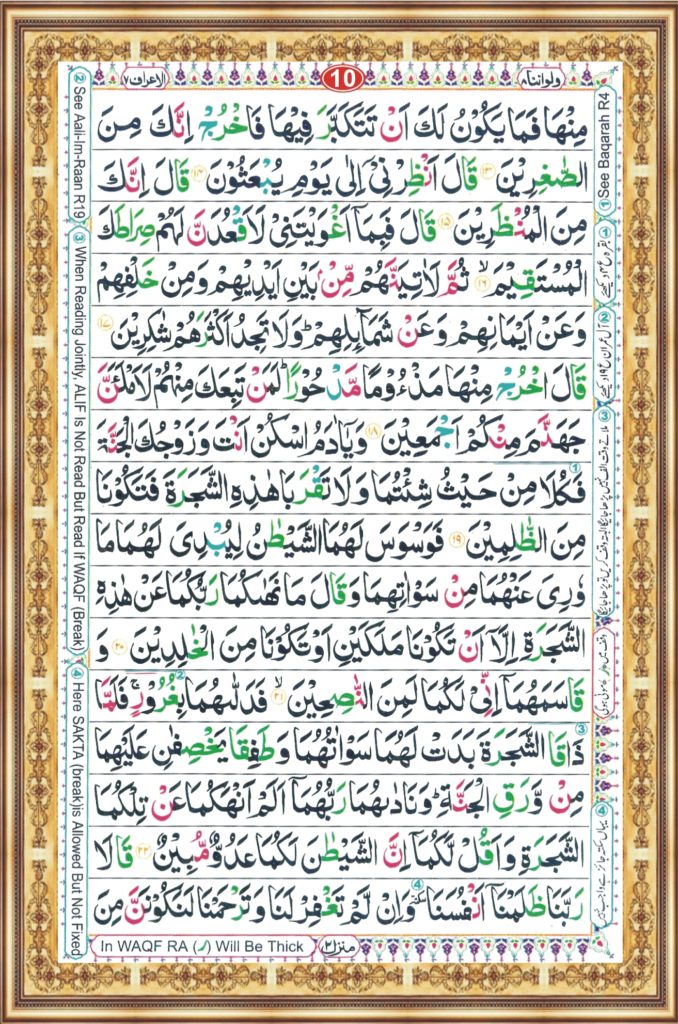 ولواننا ٨
10
الاعراف ٧
مِنْهَا فَمَا يَكُوْنُ لَكَ اَنْ تَتَكَبَّرَ فِيْهَا فَاخْرُجْ اِنَّكَ مِنَ
الصّٰغِرِيْنَ ۝۱۳ قَالَ اَنْظِرْنِىْٓ اِلٰى يَوْمِ يُبْعَثُوْنَ ۝۱۴ قَالَ اِنَّكَ
مِنَ الْمُنْظَرِيْنَ ۝۱۵ قَالَ فَبِمَآ اَغْوَيْتَنِىْ لَاَقْعُدَنَّ لَهُمْ صِرَاطَكَ
الْمُسْتَقِيْمَ ۝۱۶ۙ ثُمَّ لَاٰتِيَنَّهُمْ مِّنْۢ بَيْنِ اَيْدِيْهِمْ وَمِنْ خَلْفِهِمْ
وَعَنْ اَيْمَانِهِمْ وَعَنْ شَمَآئِلِهِمْ ؕ وَلَا تَجِدُ اَكْثَرَهُمْ شٰكِرِيْنَ ۝۱۷
قَالَ اخْرُجْ مِنْهَا مَذْءُوْمًا مَّدْحُوْرًا ؕ لَمَنْ تَبِعَكَ مِنْهُمْ لَاَمْلَئَنَّ
جَهَنَّمَ مِنْكُمْ اَجْمَعِيْنَ ۝۱۸ وَيٰۤاٰدَمُ اسْكُنْ اَنْتَ وَزَوْجُكَ الْجَنَّةَ
فَكُلَا مِنْ حَيْثُ شِئْتُمَا وَلَا تَقْرَبَا هٰذِهِ الشَّجَرَةَ فَتَكُوْنَا ①
مِنَ الظّٰلِمِيْنَ ۝۱۹ فَوَسْوَسَ لَهُمَا الشَّيْطٰنُ لِيُبْدِىَ لَهُمَا مَا
وٗرِىَ عَنْهُمَا مِنْ سَوْاٰتِهِمَا وَقَالَ مَا نَهٰىكُمَا رَبُّكُمَا عَنْ هٰذِهِ
الشَّجَرَةِ اِلَّآ اَنْ تَكُوْنَا مَلَكَيْنِ اَوْ تَكُوْنَا مِنَ الْخٰلِدِيْنَ ۝۲۰ وَ
قَاسَمَهُمَآ اِنِّىْ لَكُمَا لَمِنَ النّٰصِحِيْنَ ۝۲۱ۙ فَدَلّٰىهُمَا بِغُرُوْرٍ ۚ فَلَمَّا ②
ذَاقَا الشَّجَرَةَ بَدَتْ لَهُمَا سَوْاٰتُهُمَا وَطَفِقَا يَخْصِفٰنِ عَلَيْهِمَا ③
مِنْ وَّرَقِ الْجَنَّةِ ؕ وَنَادٰىهُمَا رَبُّهُمَآ اَلَمْ اَنْهَكُمَا عَنْ تِلْكُمَا
الشَّجَرَةِ وَاَقُلْ لَّكُمَآ اِنَّ الشَّيْطٰنَ لَكُمَا عَدُوٌّ مُّبِيْنٌ ۝۲۲ قَالَا
رَبَّنَا ظَلَمْنَآ اَنْفُسَنَا ④ سكتة وَاِنْ لَّمْ تَغْفِرْ لَنَا وَتَرْحَمْنَا لَنَكُوْنَنَّ مِنَ
منزل ٢
In WAQF RA (ر) Will Be Thick
① See Baqarah R4
② See Aali-Im-Raan R19
③ When Reading Jointly, ALIF Is Not Read But Read If WAQF (Break)
④ Here SAKTA (break)is Allowed But Not Fixed